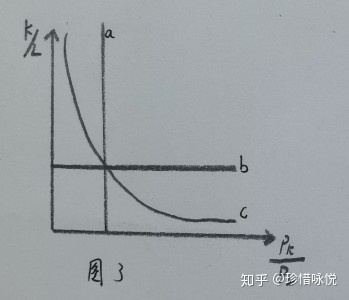 K/L
a
b
c
PK
PL
图3
知乎 @珍惜咏悦